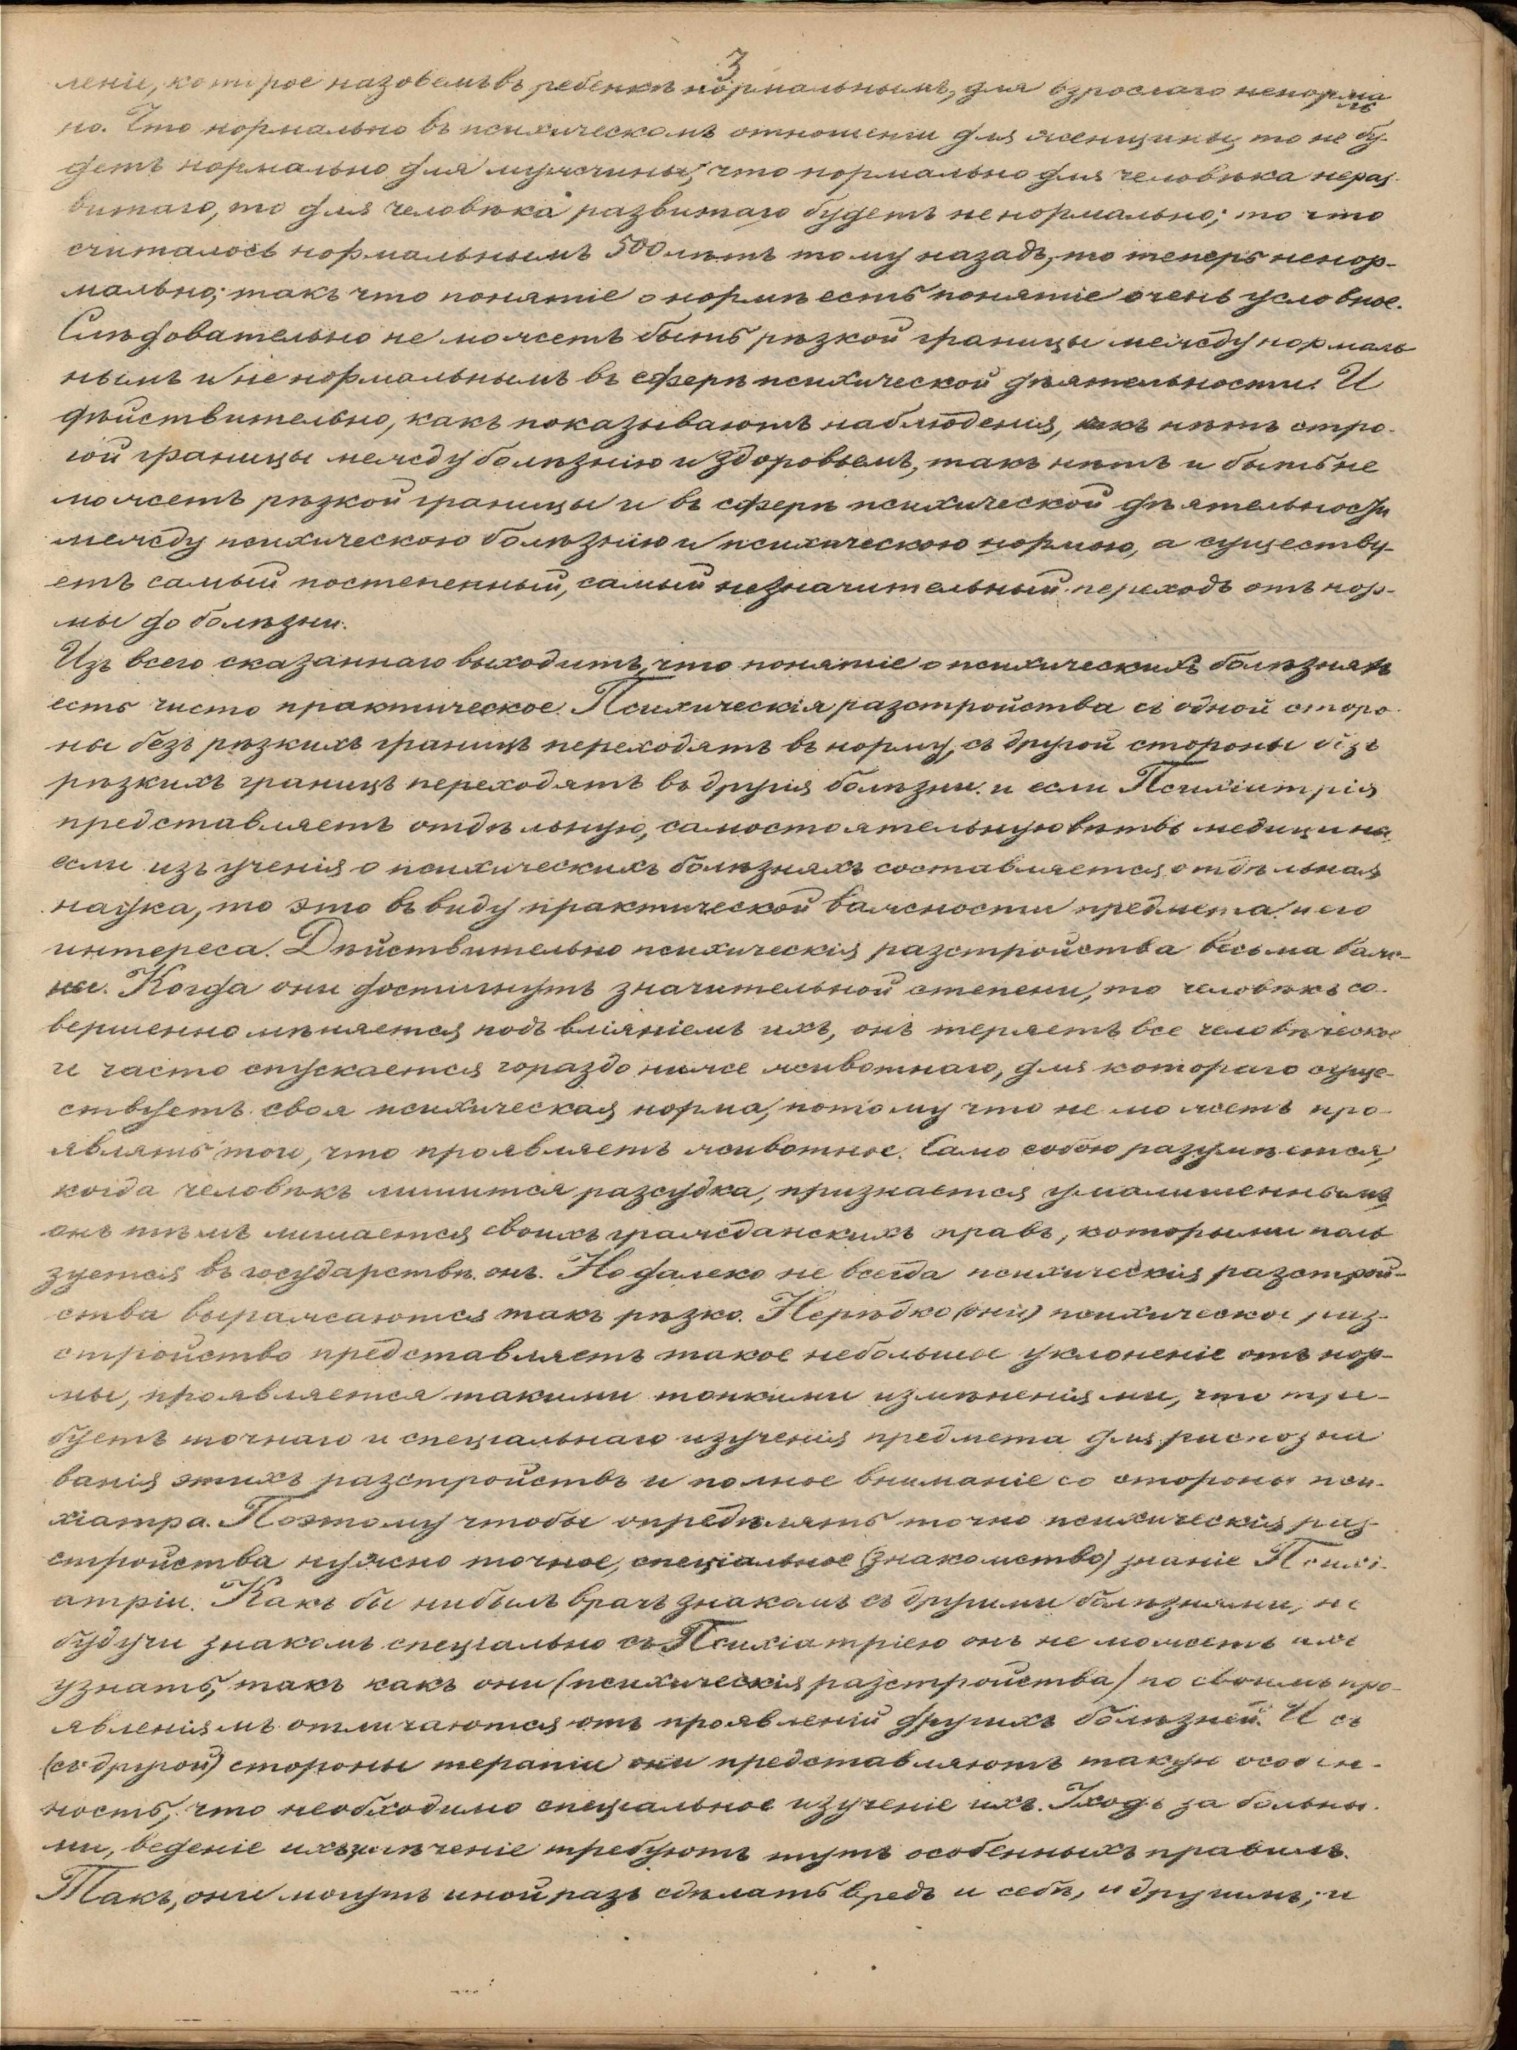 3
леніе, которое назовемъ въ ребенкѣ нормальнымъ, для взрослаго ненормаль
но. Что нормально въ психическомъ отношеніи для женщины, то не бу-
детъ нормально для мужчины; что нормально для человѣка нераз-
витаго, то для человѣка развитаго будетъ ненормально; то что
считалось нормальнымъ 500 лѣтъ тому назадъ, то теперь ненор-
мально; такъ что понятіе о нормѣ есть понятіе очень условное.
Слѣдовательно не можетъ быть рѣзкой границы между нормаль
нымъ и ненормальнымъ въ сферѣ психической дѣятельности. И
дѣйствительно, какъ показываютъ наблюденія, какъ нѣтъ стро-
гой границы между болѣзнію и здоровьемъ, такъ нѣтъ и быть не
можетъ рѣзкой границы и въ сферѣ психической дѣятельности
между психическою болѣзнію и психическою нормою, а существу-
етъ самый постепенный, самый незначительный переходъ отъ нор-
мы до болѣзни.
Изъ всего сказаннаго выходитъ, что понятіе о психическихъ болѣзняхъ
есть чисто практическое. Психическія разстройства съ одной сторо-
ны безъ рѣзкихъ границъ переходятъ въ норму, съ другой стороны безъ
рѣзкихъ границъ переходятъ въ другія болѣзни. и если Психіатрія
представляетъ отдѣльную, самостоятельную вѣтвь медицины,
если изъ ученія о психическихъ болѣзняхъ составляется отдѣльная
наука, то это въ виду практической важности предмета и его
интереса. Дѣйствительно психическія разстройства весьма важ-
ны. Когда они достигнутъ значительной степени, то человѣкъ со-
вершенно мѣняется подъ вліяніемъ ихъ, онъ теряетъ все человѣческое
и часто спускается гораздо ниже животнаго, для котораго суще-
ствуетъ своя психическая норма, потому что не можетъ про-
являть того, что проявляетъ животное. Само собою разумѣется,
когда человѣкъ лишится разсудка, признается умалишеннымъ
онъ тѣмъ лишается своихъ гражданскихъ правъ, которыми поль
зуется въ государствѣ онъ. Но далеко не всегда психическія разстрой-
ства выражаются такъ рѣзко. Нерѣдко (они) психическое раз-
стройство представляетъ такое небольшое уклоненіе отъ нор-
мы, проявляется такими тонкими измѣненіями, что тре-
буетъ точнаго и спеціальнаго изученія предмета для распозна
ванія этихъ разстройствъ и полное вниманіе со стороны пси-
хіатра. Поэтому чтобы опредѣлять точно психическія раз-
стройства нужно точное, спеціальное (знакомство) знаніе Психі-
атріи. Какъ бы ни былъ врачъ знакомъ съ другими болѣзнями, не
будучи знакомъ спеціально съ Психіатріею онъ не можетъ ихъ
узнать, такъ какъ они (психическія разстройства) по своимъ про-
явленіямъ отличаются отъ проявленій другихъ болѣзней. И съ
(съ другой) стороны терапіи они представляютъ такую особен-
ность, что необходимо спеціальное изученіе ихъ. Уходъ за больны-
ми, веденіе ихъ, леченіе требуютъ тутъ особенныхъ правилъ.
Такъ, они могутъ иной разъ сдѣлать вредъ и себѣ, и другимъ; и